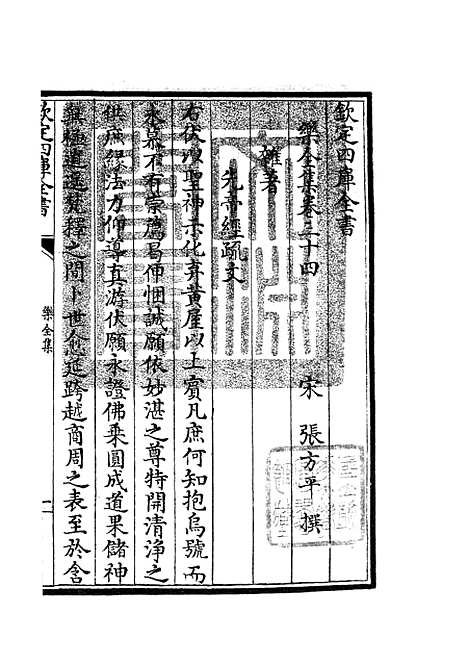 欽定四庫全書
樂全集卷三十四
宋 張方平 撰
雜著
先帝經疏文
右伏以聖神示化弃黃屋以上賓凡庶何知抱烏號而
永慕不有崇薦曷伸悃誠願依妙湛之尊特開清淨之
供庶緣法力仰導真游伏願永證佛乗圓成道果儲神
無極逍遥梵釋之間卜世愈延跨越商周之表至於含
欽定四庫全書
樂全集